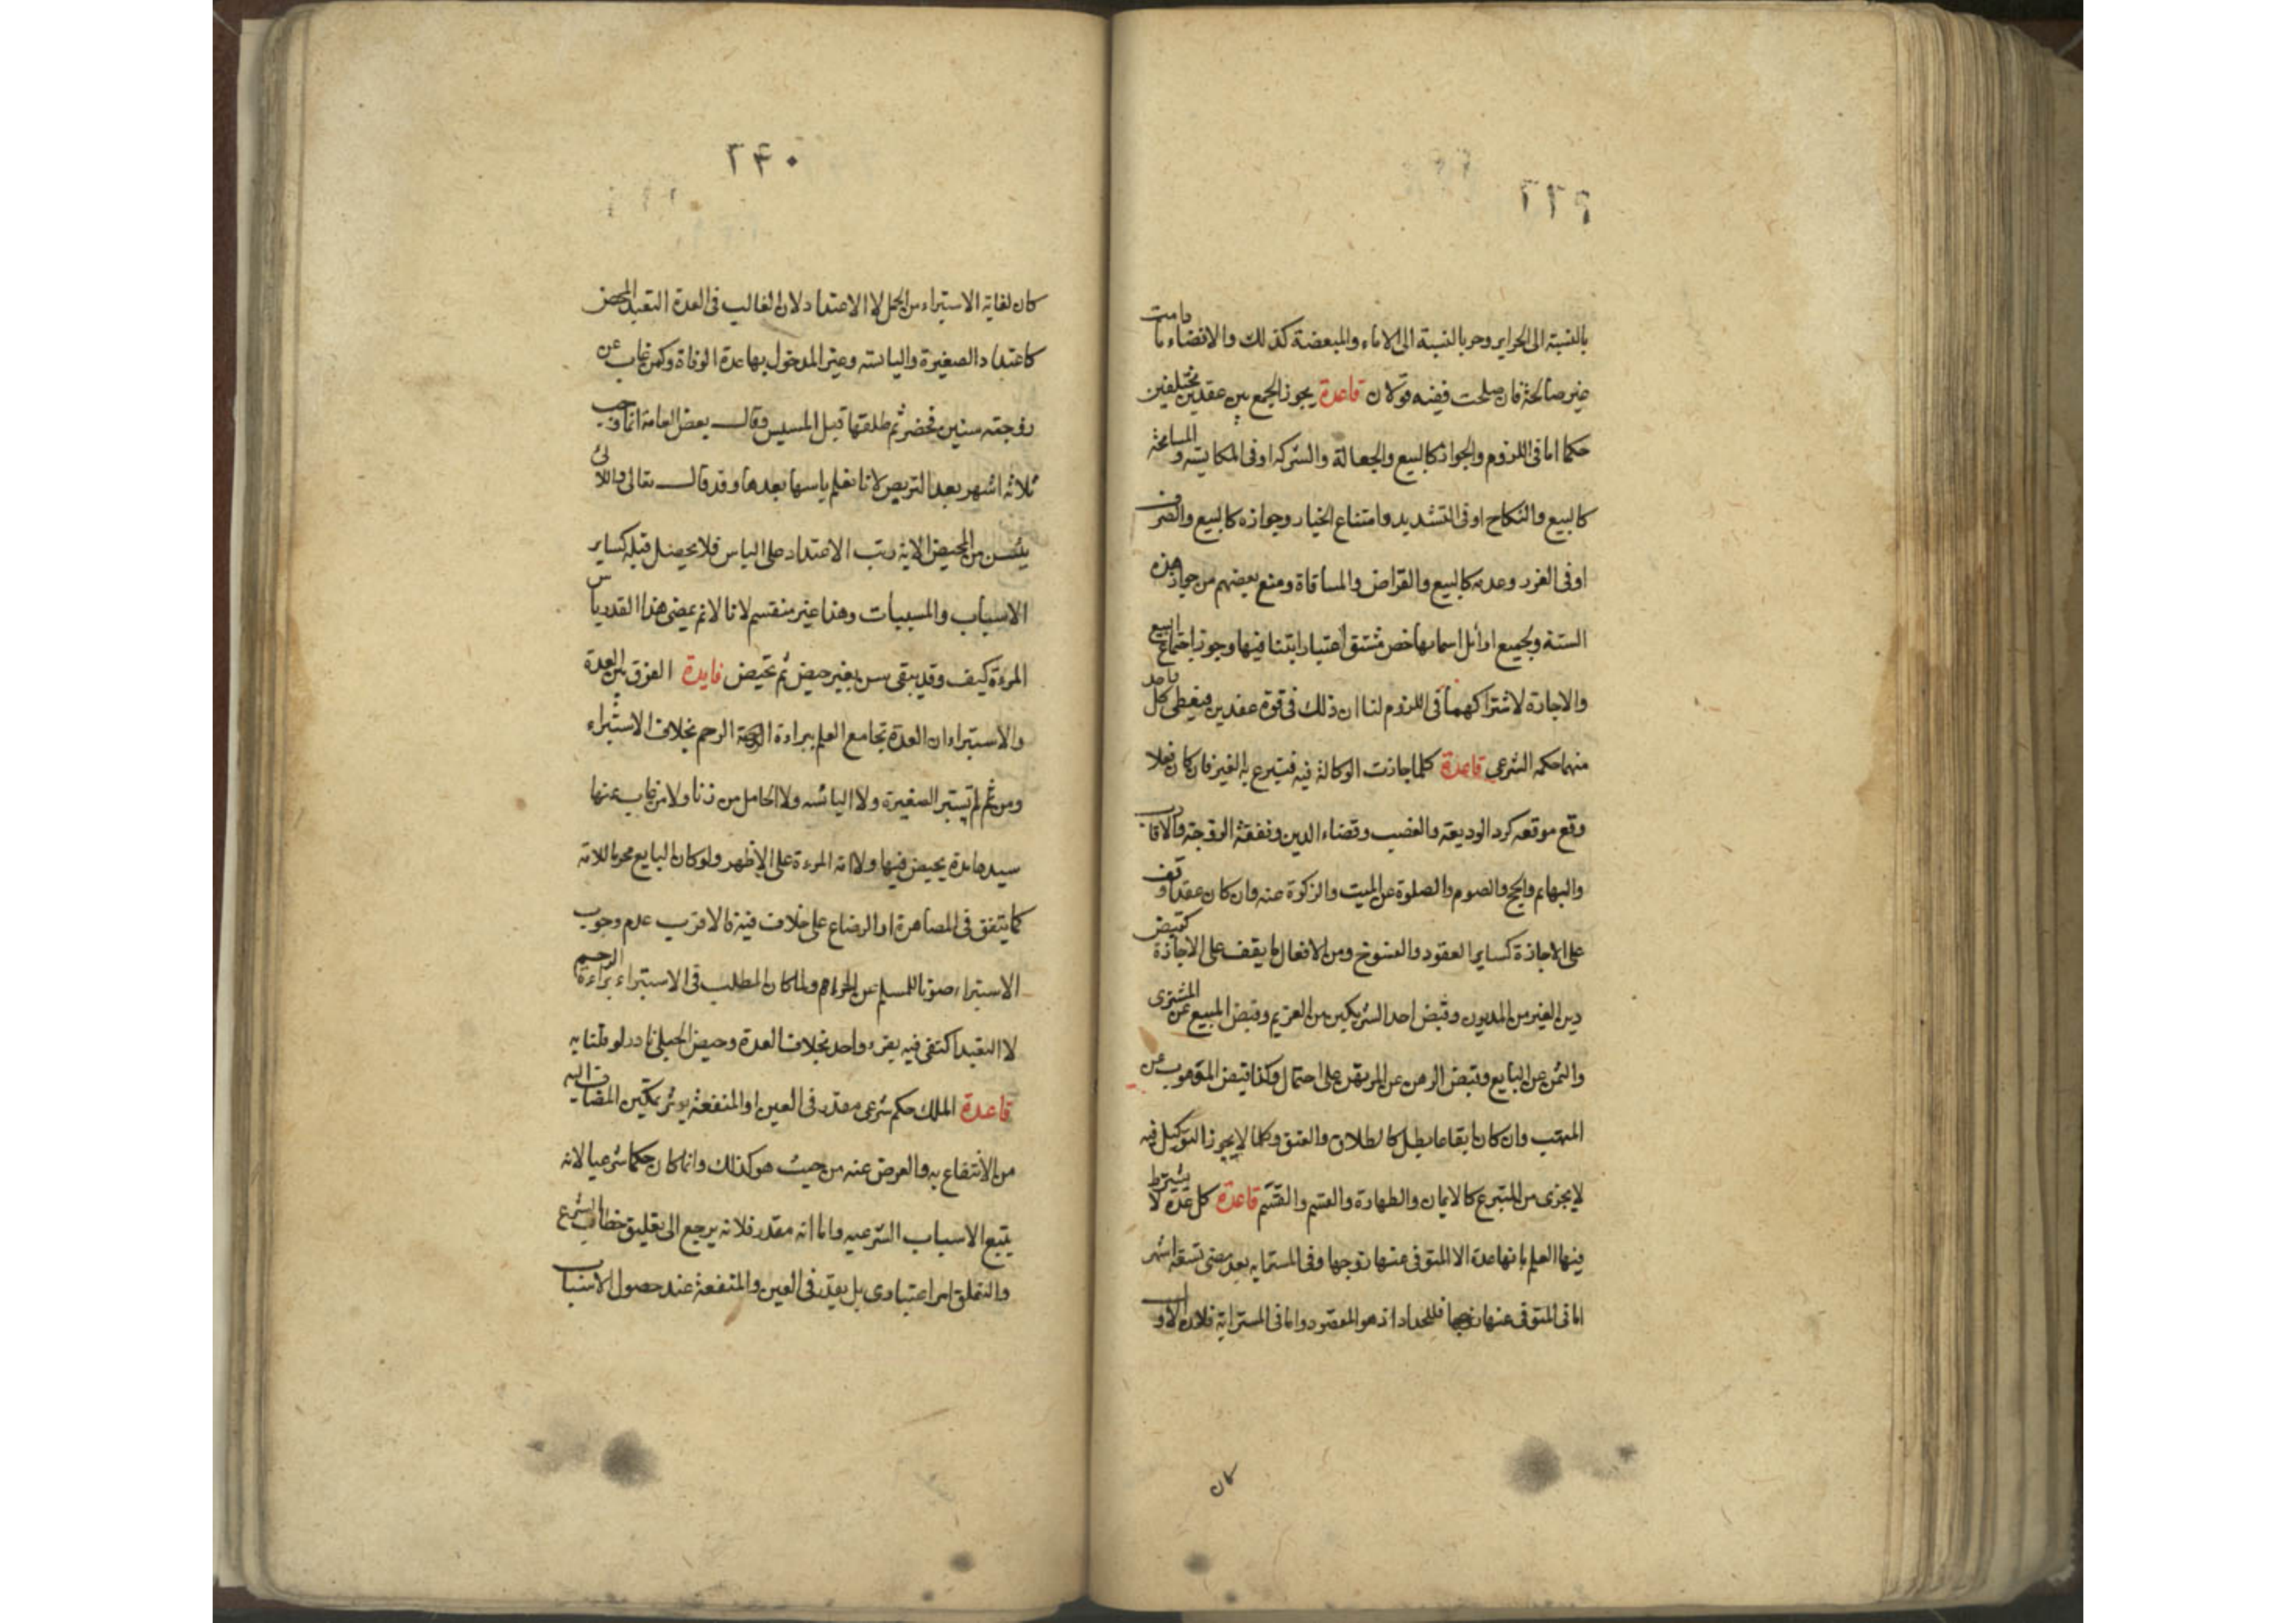 ٢٣٩
بالنسبة الى الحراير وحربا لنسبة الى الاماء والمبعضة كذلك والافضاء ما دامت
غير صالحة فان صلحت ففيه قولان قاعدة يجوز الجمع بين عقدين مختلفين
حكما اما فى اللزوم والجواز كالبيع والجعالة والشركة او فى المكايسة والمسامحة
كالبيع والنكاح او فى التشديد وامتناع الخيار وجوازه كالبيع والصرف
او فى الغرر وعدمه كالبيع والقراض والمساقاة ومنع بعضهم من جواز هذه
الستة ولجميع اوائل اسمائها خص مشتق اعتبارا بتنا فيها وجوز اجتماع البيع
والاجارة لاشتراكهما فى اللزوم لنا ان ذلك فى قوة عقدين فيعطى كل واحد
منهما حكمه الشرعى قاعدة كلما جازت الوكالة فيه فتبرع به الغير فان كان فعلا
وقع موقعه كرد الوديعة والغصب وقضاء الدين ونفقة الزوجة والاقارب
والبهائم والحج والصوم والصلوة عن الميت والزكوة عنه وان كان عقدا وقف
على الاجازة كساير العقود والفسوخ ومن الافعال ما يقف على الاجازة كقبض
دين الغير من المديون وقبض احد الشريكين من الغريم وقبض المبيع عن المشترى
والثمن عن البايع وقبض الرهن عن المرتهن على احتمال وكذا قبض الموهوب عن
المتهب وان كان ايقاعا بطل كالطلاق والعتق وكلما لا يجوز التوكيل فيه
لا يجزى من المتبرع كالايمان والطهارة والقسم والقسم قاعدة كل عدة لا يشترط
فيها العلم بانها عدة الا المتوفى عنها زوجها وفى المسترابة بعد مضى تسعة اشهر
اما فى المتوفى عنها زوجها فللحداد اذ هو المقصود واما فى المسترابة فلان الاول
كان
٢٤٠
كان لغاية الاستبراء من الحمل لا الاعتداد لان الغالب فى العدة التعبد المحض
كاعتداد الصغيرة واليائسة وغير المدخول بها عدة الوفاة وكمن غاب عن
زوجته سنين فحضر ثم طلقها قبل المسيس وقال بعض العامة انما وجب
ثلاثة اشهر بعد التربص لانا نعلم ياسها بعدها وقد قال تعالى واللائى
يئسن من المحيض الاية رتب الاعتداد على الياس فلا يحصل قبله كساير
الاسباب والمسببات وهذا غير منقسم لانا لانم بمضى هذا القدر ياس
المرءة كيف وقد يبقى سنين بغير حيض ثم تحيض فايدة الفرق بين العدة
والاستبراء ان العدة تجامع العلم ببراءة الرحم بخلاف الاستبراء
ومن ثم لم تستبر الصغيرة ولا اليائسه ولا الحامل من زنا ولا من غاب عنها
سيدها مدة يحيض فيها ولا امة المرءة على الاظهر ولو كان البايع محرما للامة
كما يتفق فى المصاهرة او الرضاع على خلاف فيه فالاقرب عدم وجوب
الاستبراء صونا للمسلم عن الحرام ولما كان المطلب فى الاستبراء براءة الرحم
لا التعبد اكتفى فيه بقرء واحد بخلاف العدة وحيض الحبلى نادر لو قلنا به
قاعدة الملك حكم شرعى مقدر فى العين او المنفعة يوثر تمكين المضاف اليه
من الانتفاع به والعوض عنه من حيث هو كذلك وانما كان حكما شرعيا لانه
يتبع الاسباب الشرعيه واما انه مقدر فلانه يرجع الى تعليق خطاب الشرع
والتعلق امر اعتبارى بل يقدر فى العين والمنفعة عند حصول الاسباب